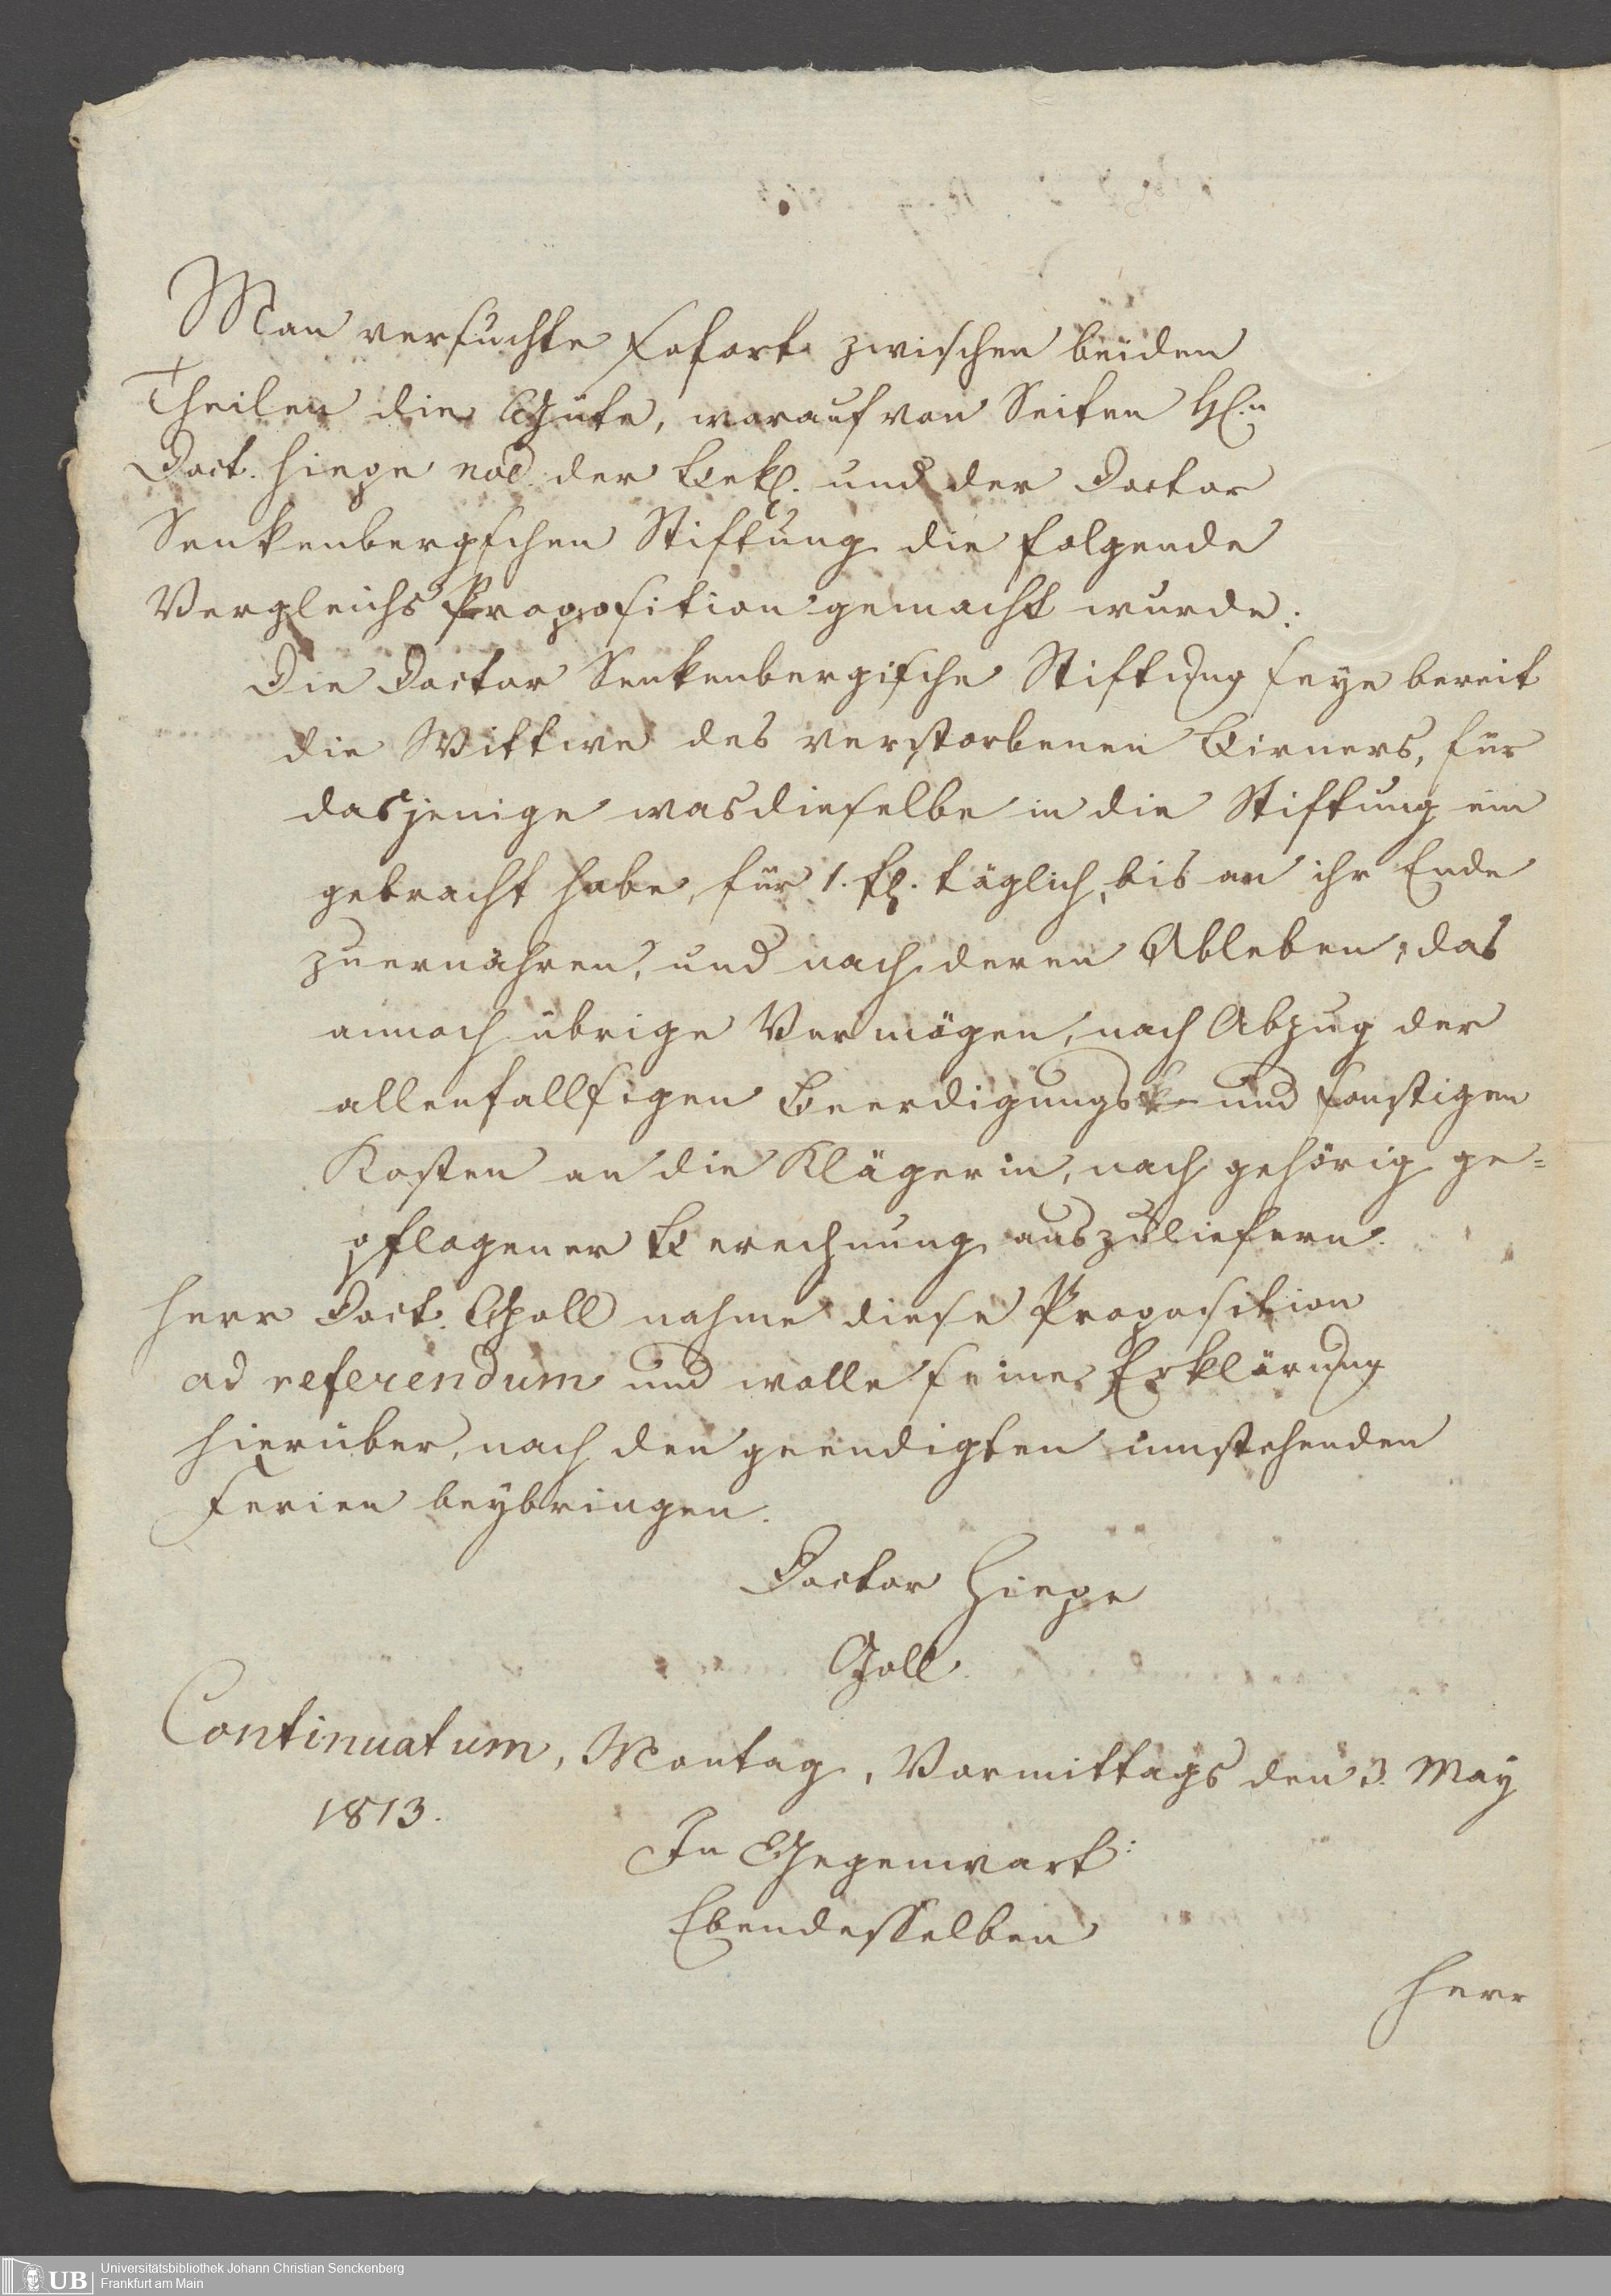 Man versuchte sofort zwischen beiden
Theilen die Güte, worauf von Seiten H.n
Doct. Hiepe noē. der Bekl. und der Doctor
Senkenbergschen Stiftung die folgende
Vergleichs Proposition gemacht wurde:
Die Doctor Senkenbergische Stiftung seye bereit
die Wittwe des verstorbenen Birners, für
dasjenige was dieselbe in die Stiftung ein
gebracht habe, für 1. fl. täglich, bis an ihr Ende
zu ernähren, und nach deren Ableben, das
annoch übrige Vermögen, nach Abzug der
allenfallsigen Beerdigungs- und sonstigen
Kosten an die Klägerin, nach gehörig ge=
pflogener Berechnung auszuliefern.
Herr Doct. Goll nahme diese Proposition
ad referendum und wolle seine Erklärung
hierüber, nach den geendigten umstehenden
Ferien beybringen.
Doctor Hiepe
Goll.
Continuatum, Montag, Vormittags den 3. May
1813.
In Gegenwart:
Ebendesselben
Herr
UB
Universitätsbibliothek Johann Christian Senckenberg
Frankfurt am Main